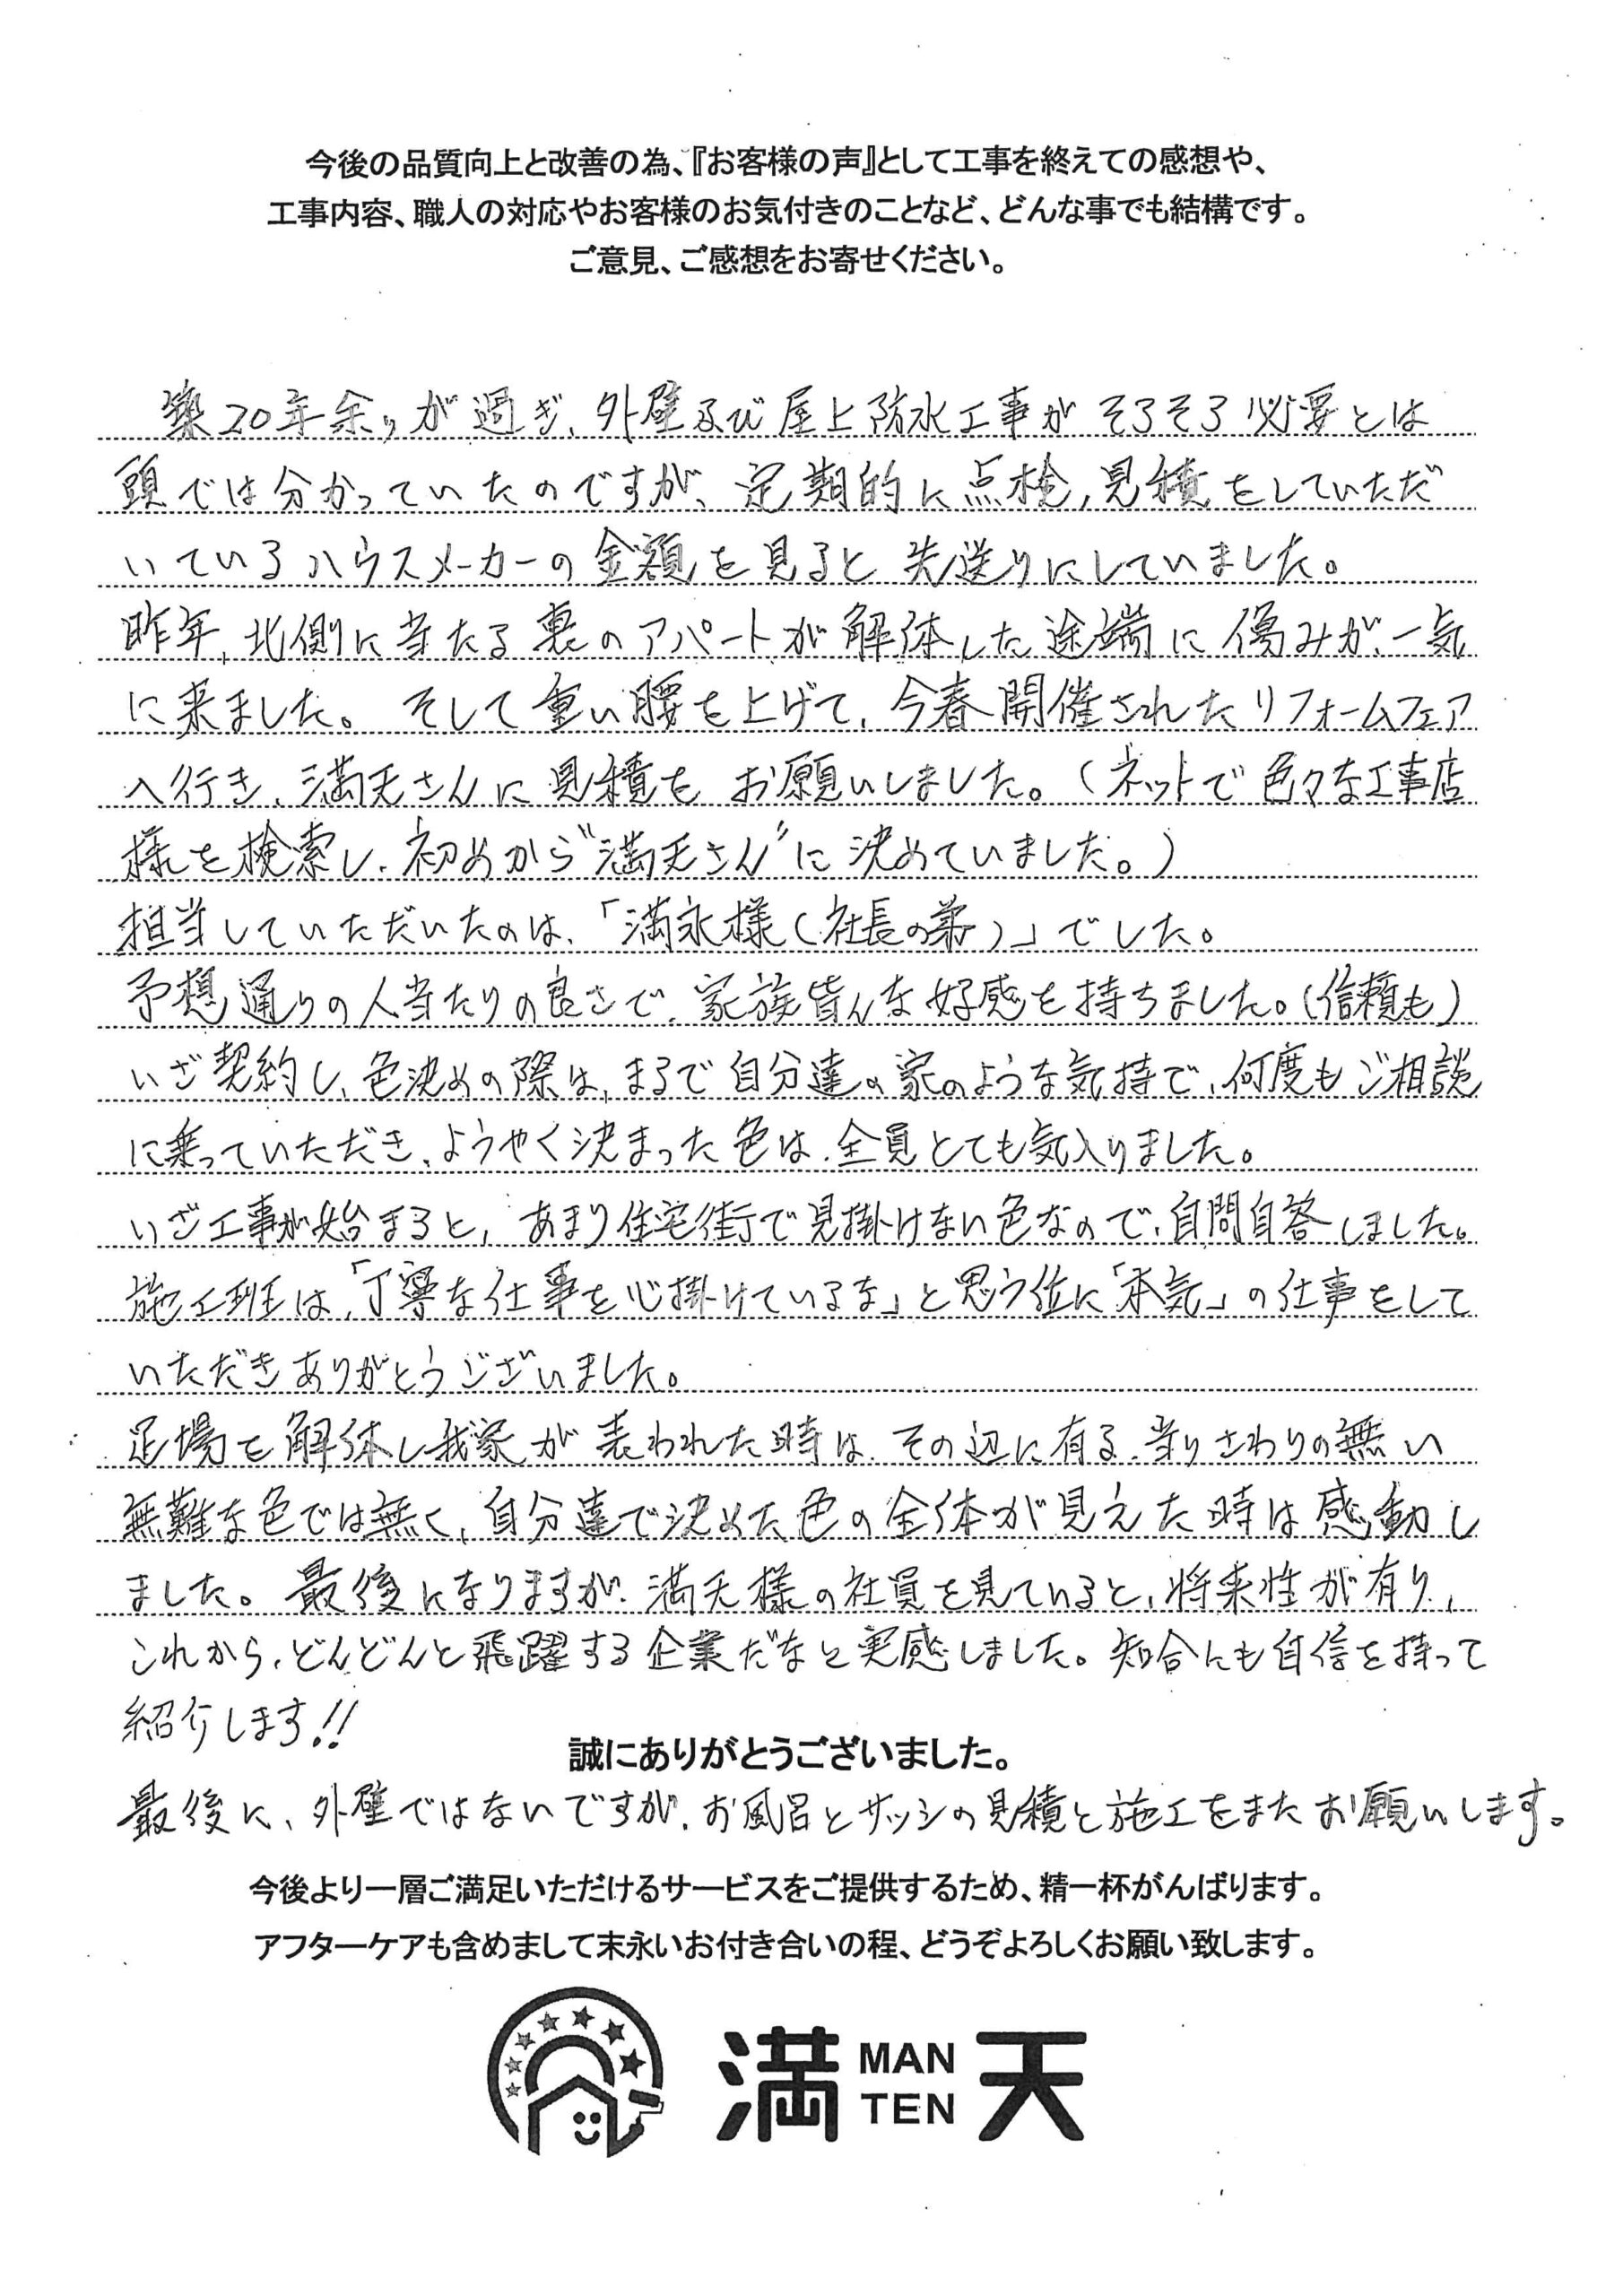 今後の品質向上と改善の為、『お客様の声』として工事を終えての感想や、
工事内容、職人の対応やお客様のお気付きのことなど、どんな事でも結構です。
ご意見、ご感想をお寄せください。
築20年余りが過ぎ、外壁及び屋上防水工事がそろそろ必要とは
頭では分かっていたのですが、定期的に点検,見積をしていただ
いているハウスメーカーの金額を見ると先送りにしていました。
昨年、北側に当たる裏のアパートが解体した途端に傷みが、一気
に来ました。そして重い腰を上げて、今春開催されたリフォームフェア
へ行き、満天さんに見積をお願いしました。(ネットで色々な工事店
様を検索し、初めから"満天さん"に決めていました。)
担当していただいたのは、「満永様(社長の弟)」でした。
予想通りの人当たりの良さで、家族皆んな好感を持ちました。(信頼も)
いざ契約し、色決めの際は、まるで自分達の家のような気持で、何度もご相談
に乗っていただき、ようやく決まった色は、全員とても気入りました。
いざ工事が始まると、あまり住宅街で見掛けない色なので、自問自答しました。
施工班は、「丁寧な仕事を心掛けているな」と思う位に「本気」の仕事をして
いただきありがとうございました。
足場を解体し我家が表われた時は、その辺に有る、当りさわりの無い
無難な色では無く、自分達で決めた色の全体が見えた時は感動し
ました。最後になりますが、満天様の社員を見ていると、将来性が有り、
これから、どんどんと飛躍する企業だなと実感しました。知合にも自信を持って
紹介します!!
誠にありがとうございました。
最後に、外壁ではないですが、お風呂とサッシの見積と施工をまたお願いします。
今後より一層ご満足いただけるサービスをご提供するため、精一杯がんばります。
アフターケアも含めまして末永いお付き合いの程、どうぞよろしくお願い致します。
満天 MAN TEN